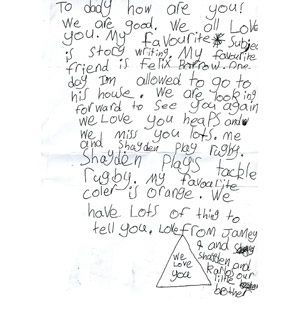 To dady how are you!
We are good. We all Love
you. My favourite subject
is story writing My favourite
friend is felix Barrow. One
day Im allowed to go to
his house. We are looking
forward to see you again
we Love you heaps and
we miss you lots. me
and Shayden play rugby.
Shayden Plays tackle
rugby. My favourite
coler is orange. We
have Lots of thing to
tell you. Love From Jamey
& and
Shayden and
our
little
bother
we
Love
you